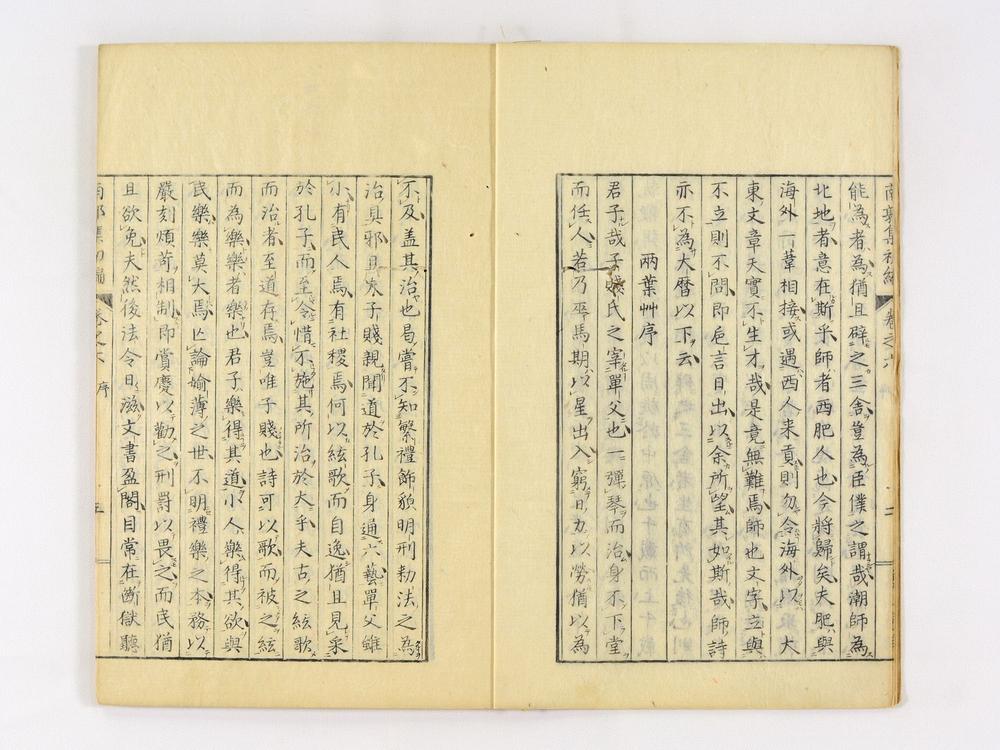 南郭集初編 卷之六 序
能為者為猶且辟之三舎豈為臣僕之謂哉潮師為
北地者意在斯乎師者西肥人也今將歸矣夫肥與
海外一葦相接或遇西人来貢則勿令海外以大
東文章天實不生才哉是竟無難焉師也文字立與
不立則不問即巵言日出以余所望其如斯哉師詩
亦不為大曆以下云
兩葉艸序
君子哉子賤氏之宰單父也一彈琴而治身不下堂
而任人若乃巫馬期以星出入窮日力以勞猶以為
不及盖其治也曷嘗不知繁禮飾貌明刑勑法之為
治具邪且夫子賤親聞道於孔子身通六藝單父雖
小有民人焉有社稷焉何以絃歌而自逸猶且見采
於孔子而至令惜不施其所治於大乎夫古之絃歌
而治者至道存焉豈唯子賤也詩可以歌而被之絃
而為樂樂者樂也君子樂得其道小人樂得其欲與
民樂樂莫大焉亾論媮薄之世不明禮樂之本務以
嚴刻煩苛相制即賞慶以勸之刑罸以畏之而民猶
且欲免夫然後法令日滋文書盈閣目常在斷獄聽
南郭集初編 卷之六 序 五